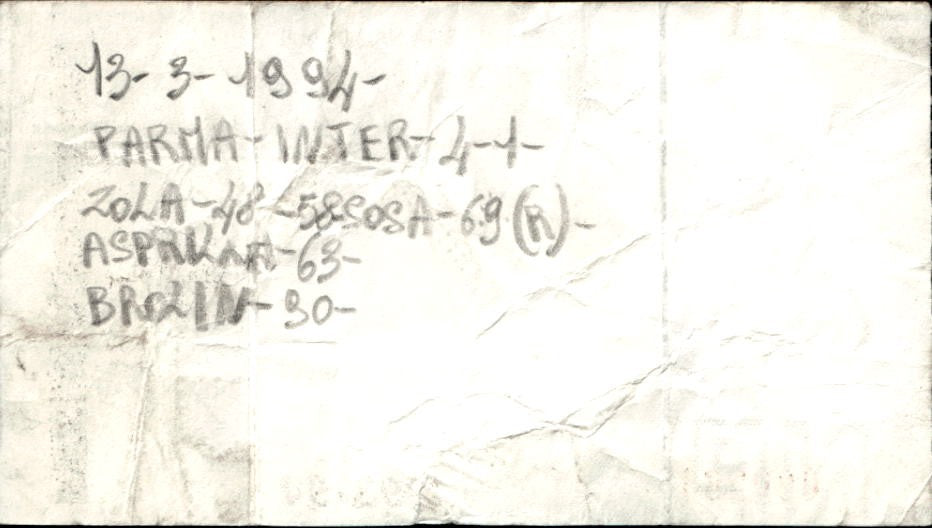 13-3-1994-
PARMA-INTER-4-1-
ZOLA-48-58SOSA-69(R)-
ASPRILLA-63-
BROLIN-90-